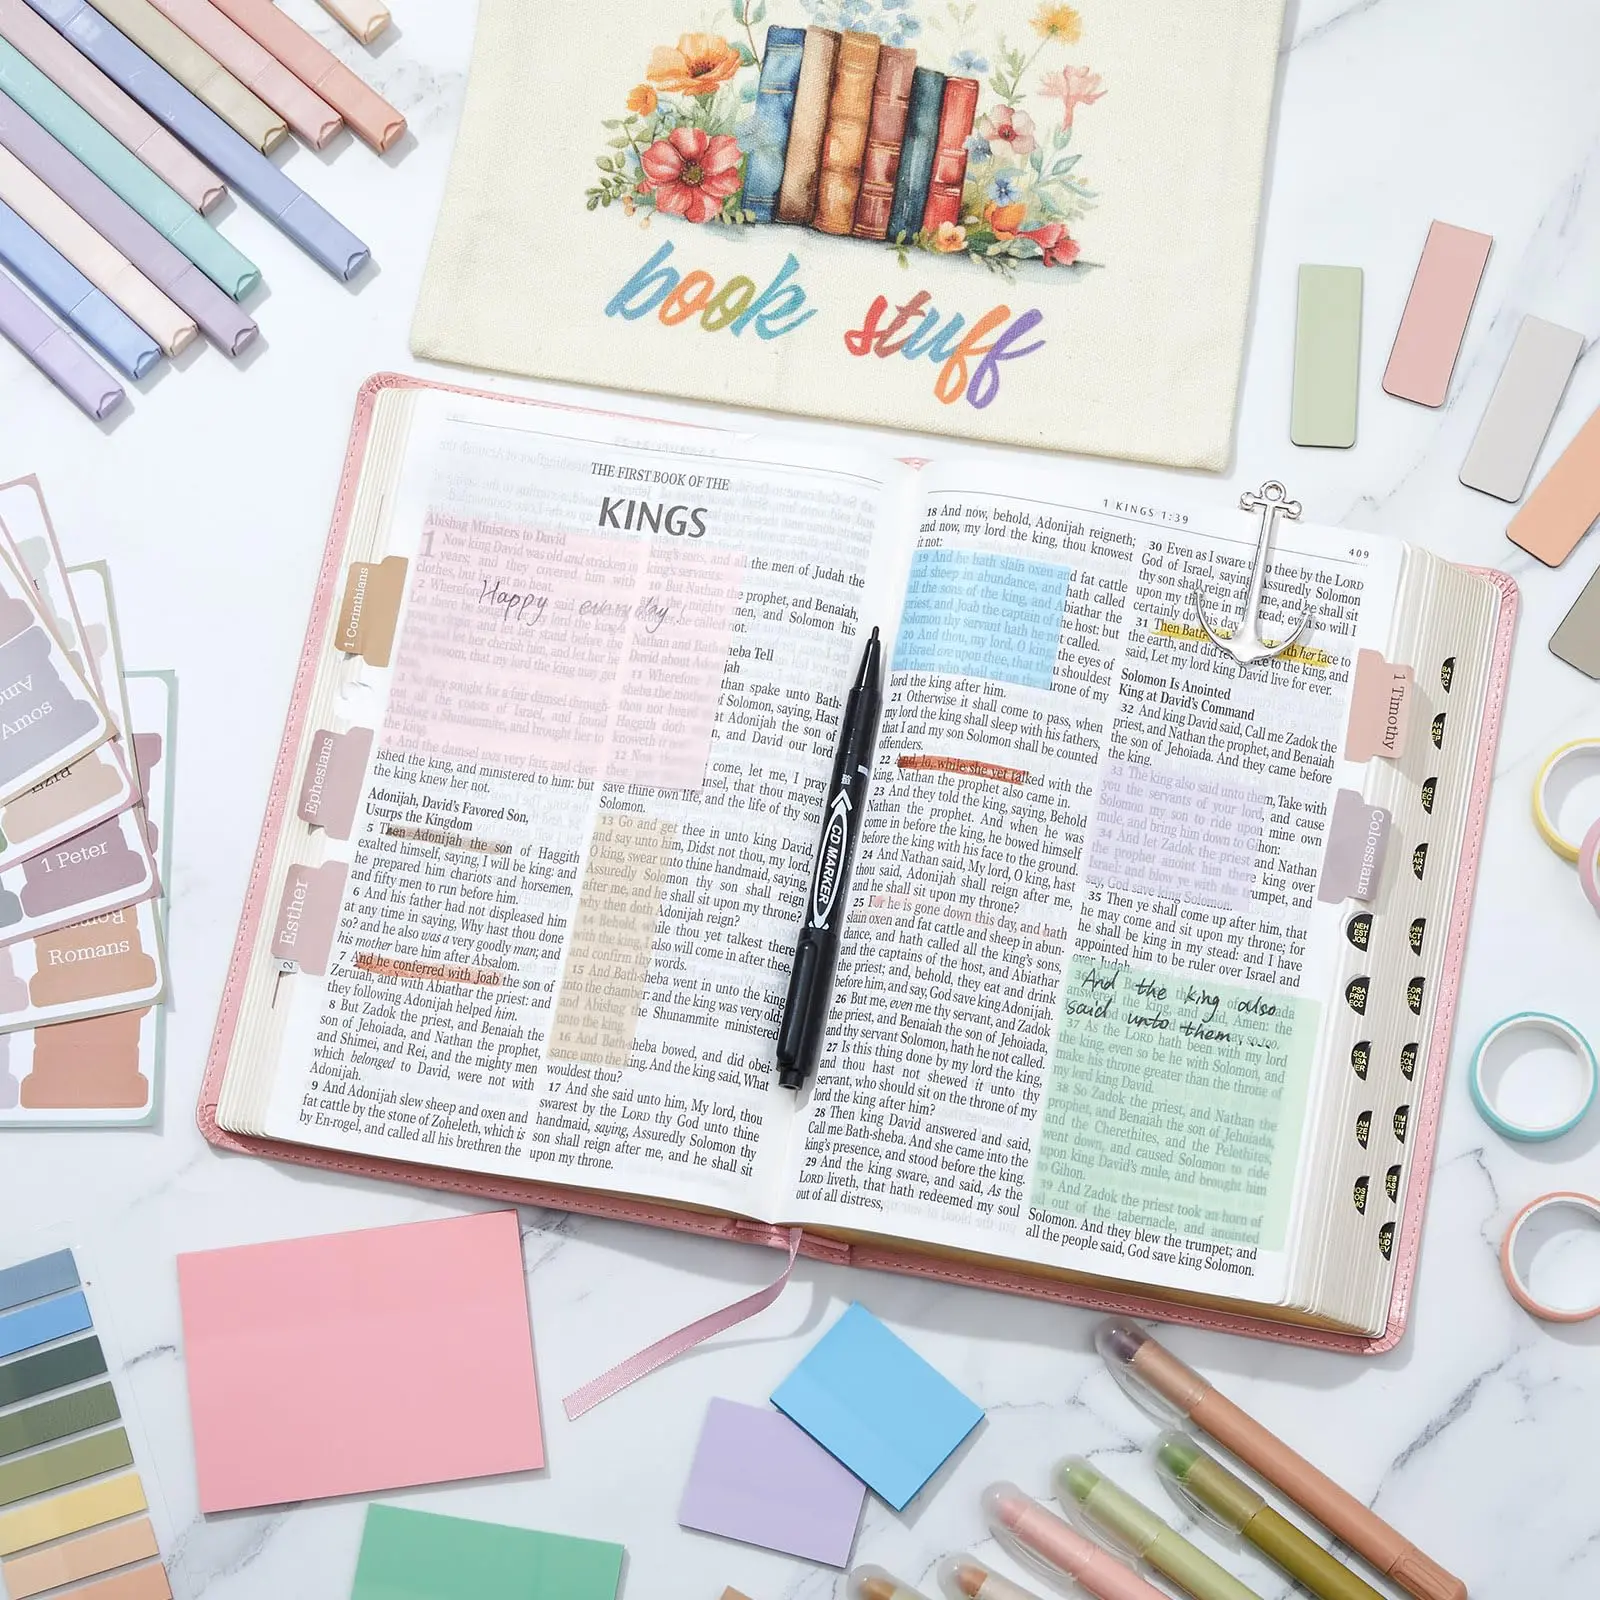 book stuff
THE FIRST BOOK OF THE
KINGS
Abishag Ministers to David
1 Now king David was old and stricken in
years; and they covered him with
clothes, but he gat no heat.
Happy every day
3 So they sought for a fair damsel through-
out all the coasts of Israel, and found
Abishag a Shunammite, and brought her to
the king.
4 And the damsel was very fair, and cher-
ished the king, and ministered to him: but
the king knew her not.
Adonijah, David's Favored Son,
Usurps the Kingdom
5 Then Adonijah the son of Haggith
exalted himself, saying, I will be king: and
he prepared him chariots and horsemen,
and fifty men to run before him.
6 And his father had not displeased him
at any time in saying, Why hast thou done
so? and he also was a very goodly man; and
his mother bare him after Absalom.
7 And he conferred with Joab the son of
Zeruiah, and with Abiathar the priest: and
they following Adonijah helped him.
8 But Zadok the priest, and Benaiah the
son of Jehoiada, and Nathan the prophet,
and Shimei, and Rei, and the mighty men
which belonged to David, were not with
Adonijah.
9 And Adonijah slew sheep and oxen and
fat cattle by the stone of Zoheleth, which is
by En-rogel, and called all his brethren the
king's sons, and all the men of Judah the
king's servants:
10 But Nathan the prophet, and Benaiah,
not.
11 Wherefore
than spake unto Bath-
of Solomon, saying, Hast
Adonijah the son of
Haggith doth
and David our lord
knoweth it not?
12 Now
come, let me, I pray
save thine own life, and the life of thy son
Solomon.
13 Go and get thee in unto king David,
and say unto him, Didst not thou, my lord,
O king, swear unto thine handmaid, saying,
Assuredly Solomon thy son shall reign
after me, and he shall sit upon my throne?
why then doth Adonijah reign?
14 Behold, while thou yet talkest there
with the king, I also will come in after thee,
and confirm thy words.
15 And Bath-sheba went in unto the king
into the chamber: and the king was very old;
and Abishag the Shunammite ministered
unto the king.
16 And Bath-sheba bowed, and did obei-
sance unto the king. And the king said, What
wouldest thou?
17 And she said unto him, My lord, thou
swarest by the LORD thy God unto thine
handmaid, saying, Assuredly Solomon thy
son shall reign after me, and he shall sit
upon my throne.
1 KINGS 1:39
409
18 And now, behold, Adonijah reigneth;
and now, my lord the king, thou knowest
it not:
19 And he hath slain oxen and fat cattle
and sheep in abundance, and hath called
all the sons of the king, and Abiathar the
priest, and Joab the captain of the host: but
Solomon thy servant hath he not called.
20 And thou, my lord, O king, the eyes of
all Israel are upon thee, that thou shouldest
tell them who shall sit on the throne of my
lord the king after him.
21 Otherwise it shall come to pass, when
my lord the king shall sleep with his fathers,
that I and my son Solomon shall be counted
offenders.
22 And, lo, while she yet talked with the
king, Nathan the prophet also came in.
23 And they told the king, saying, Behold
Nathan the prophet. And when he was
come in before the king, he bowed himself
before the king with his face to the ground.
24 And Nathan said, My lord, O king, hast
thou said, Adonijah shall reign after me,
and he shall sit upon my throne?
25 For he is gone down this day, and hath
slain oxen and fat cattle and sheep in abun-
dance, and hath called all the king's sons,
and the captains of the host, and Abiathar
the priest; and, behold, they eat and drink
before him, and say, God save king Adonijah.
26 But me, even me thy servant, and Zadok
the priest, and Benaiah the son of Jehoiada,
and thy servant Solomon, hath he not called.
27 Is this thing done by my lord the king,
and thou hast not shewed it unto thy
servant, who should sit on the throne of my
lord the king after him?
28 Then king David answered and said,
Call me Bath-sheba. And she came into the
king's presence, and stood before the king.
29 And the king sware, and said, As the
LORD liveth, that hath redeemed my soul
out of all distress,
30 Even as I sware unto thee by the LORD
God of Israel, saying, Assuredly Solomon
thy son shall reign after me, and he shall sit
upon my throne in my stead; even so will I
certainly do this day.
31 Then Bath with her face to
the earth, and did reverence to the king, and
said, Let my lord king David live for ever.
Solomon Is Anointed
King at David's Command
32 And king David said, Call me Zadok the
priest, and Nathan the prophet, and Benaiah
the son of Jehoiada. And they came before
the king.
33 The king also said unto them, Take with
you the servants of your lord, and cause
Solomon my son to ride upon mine own
mule, and bring him down to Gihon:
34 And let Zadok the priest and Nathan
the prophet anoint him there king over
Israel: and blow ye with the trumpet, and
say, God save king Solomon.
35 Then ye shall come up after him, that
he may come and sit upon my throne; for
he shall be king in my stead: and I have
appointed him to be ruler over Israel and
over Judah.
And the king also
said unto them...
37 As the LORD hath been with my lord
the king, even so be he with Solomon, and
make his throne greater than the throne of
my lord king David.
38 So Zadok the priest, and Nathan the
prophet, and Benaiah the son of Jehoiada,
and the Cherethites, and the Pelethites,
went down, and caused Solomon to ride
upon king David's mule, and brought him
to Gihon.
39 And Zadok the priest took an horn of
oil out of the tabernacle, and anointed
Solomon. And they blew the trumpet; and
all the people said, God save king Solomon.
CD MARKER
1 Corinthians
Ephesians
Esther
1 Timothy
Colossians
Amos
Amos
Ezra
1 Peter
Romans
Romans